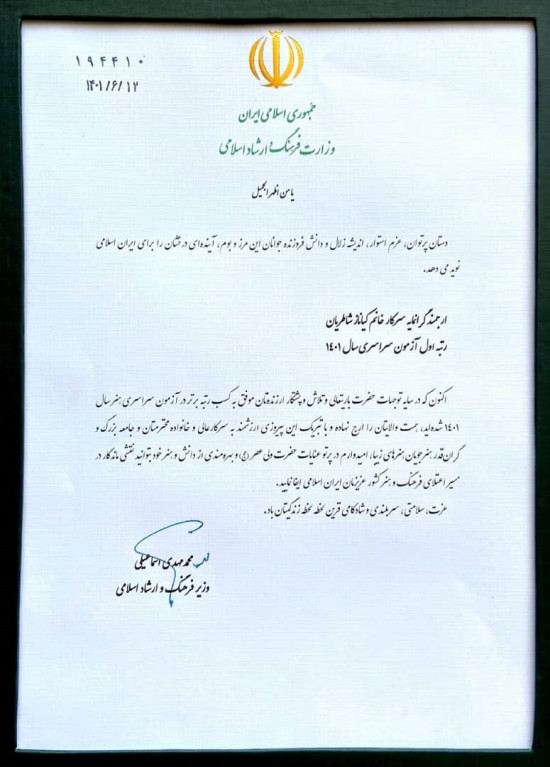 ۱۹۴۴۱۰
۱۴۰۱/۶/۱۲
جمهوری اسلامی ایران
وزارت فرهنگ و ارشاد اسلامی
یا من اظهر الجمیل
دستان پرتوان، عزم استوار، اندیشه زلال و دانش فروزنده جوانان این مرز و بوم، آینده‌ای درخشان را برای ایران اسلامی
نوید می دهد.
ارجمند گرانمایه سرکار خانم کیاناز شاطریان
رتبه اول آزمون سراسری سال ۱۴۰۱
اکنون که در سایه توجهات حضرت باریتعالی و تلاش و پشتکار ارزنده‌تان موفق به کسب رتبه برتر در آزمون سراسری هنر سال
۱۴۰۱ شده‌اید، همت والایتان را ارج نهاده و با تبریک این پیروزی ارزشمند به سرکارعالی و خانواده محترمتان و جامعه بزرگ و
گران‌قدر هنرجویان هنرهای زیبا، امیدوارم در پرتو عنایات حضرت ولی عصر (عج) و بهره‌مندی از دانش و هنر خود بتوانید نقشی ماندگار در
مسیر اعتلای فرهنگ و هنر کشور عزیزمان ایران اسلامی ایفا نمایید.
عزت، سلامتی، سربلندی و شادکامی قرین لحظه لحظه زندگیتان باد.
محمدمهدی اسماعیلی
وزیر فرهنگ و ارشاد اسلامی